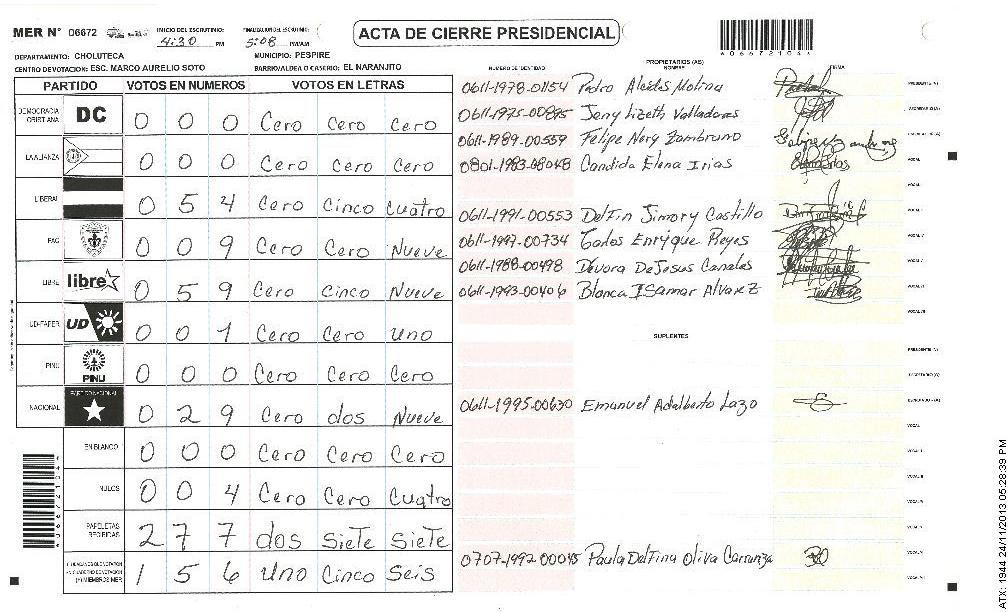 MER N° 06672
INICIO DEL ESCRUTINIO: 4:30 PM
FINALIZACION DEL ESCRUTINIO: 5:08 PM/AM
ACTA DE CIERRE PRESIDENCIAL
DEPARTAMENTO: CHOLUTECA
MUNICIPIO: PESPIRE
CENTRO DE VOTACION: ESC. MARCO AURELIO SOTO
BARRIO/ALDEA O CASERIO: EL NARANJITO
PARTIDO VOTOS EN NUMEROS VOTOS EN LETRAS
DEMOCRACIA CRISTIANA DC 0 0 0 Cero Cero Cero
LA ALIANZA 0 0 0 Cero Cero Cero
LIBERAL 0 5 4 Cero Cinco Cuatro
PAC 0 0 9 Cero Cero Nueve
LIBRE libre 0 5 9 Cero Cinco Nueve
UD-FAPER UD 0 0 1 Cero Cero Uno
PINU PINU 0 0 0 Cero Cero Cero
NACIONAL PARTIDO NACIONAL 0 2 9 Cero dos Nueve
EN BLANCO 0 0 0 Cero Cero Cero
NULOS 0 0 4 Cero Cero Cuatro
PAPELETAS RECIBIDAS 2 7 7 dos Siete Siete
1 5 6 Uno Cinco Seis
NUMERO DE IDENTIDAD
PROPIETARIOS (AS)
NOMBRE
FIRMA
0611-1978-01154 Pedro Alcides Molina
PRESIDENTE (A)
0611-1975-00895 Jeny Lizeth Valladares
0611-1989-00559 Felipe Nery Zambrano
0801-1983-08048 Candida Elena Irias
VOCAL
0611-1991-00553 Delfin Jimory Castillo
0611-1997-00734 Carlos Enrique Reyes
0611-1988-00498 Devora DeJesus Canales
0611-1993-00406 Blanca Isamar Alvarez
SUPLENTES
PRESIDENTE (A)
0611-1995-00630 Emanuel Adalberto Lazo
0707-1992-00045 Paula Delfina Oliva Carranza
ATX: 1944 24/11/2013 05:28:39 PM